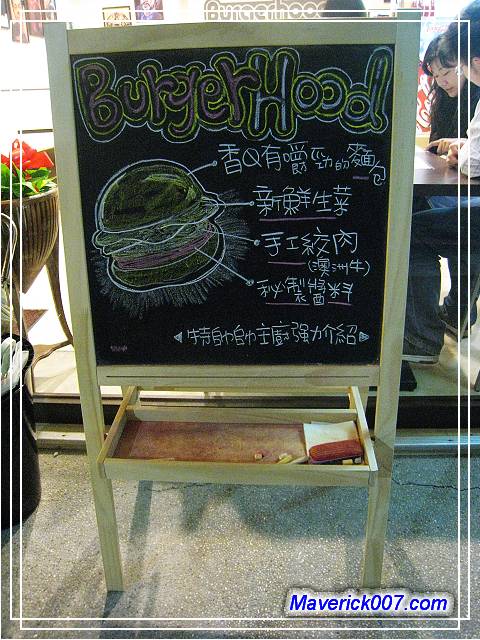 Burgerhood
BurgerHood
香Q有嚼勁的麵包
新鮮生菜
手工絞肉
(澳洲牛)
秘製醬料
特帥帥主廚強力介紹
Maverick007.com